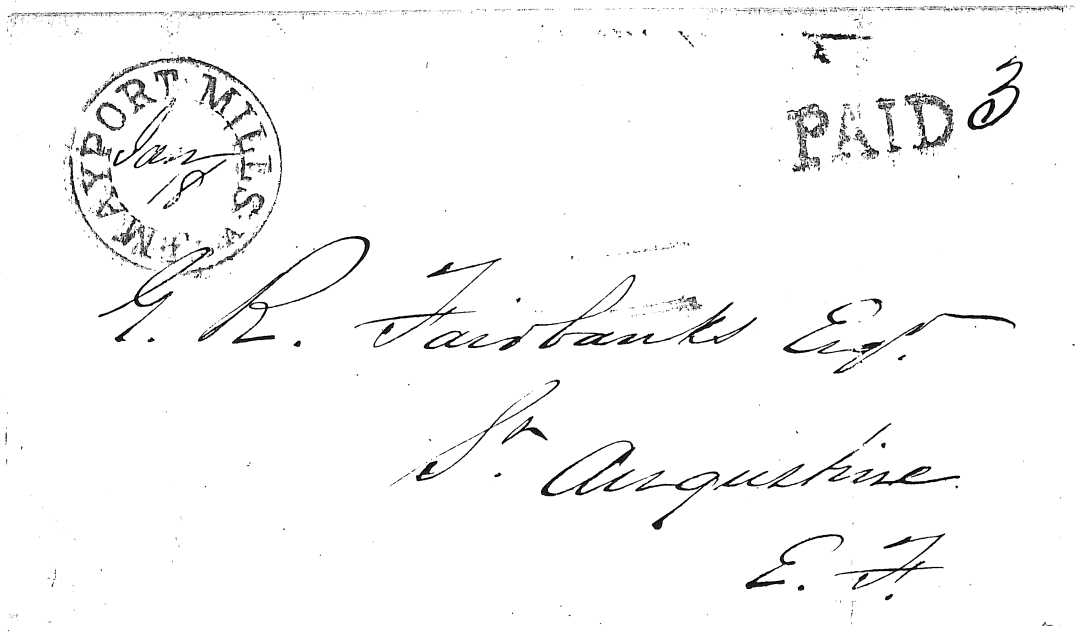 MAYPORT MILLS
Jany
18
PAID 3
G. R. Fairbanks Esqr.
St. Augustine
E. F.